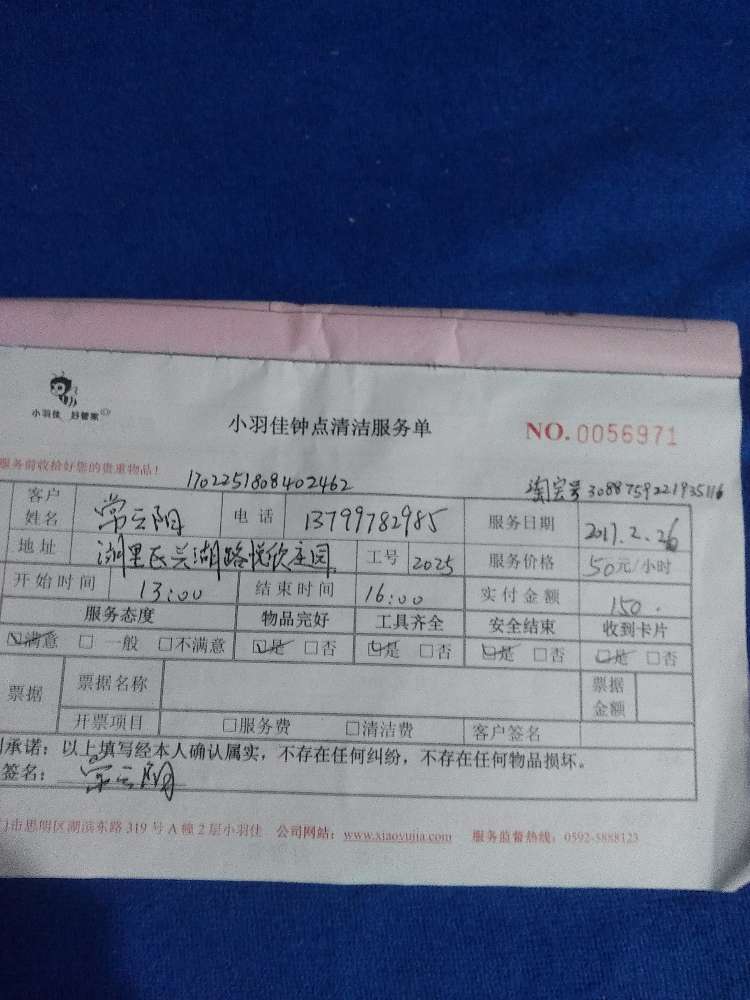 小羽佳 好管家
小羽佳钟点清洁服务单
NO.0056971
服务前收拾好您的贵重物品!
1702251808402462
淘宝号3088759221935116
客户姓名 常云阳 电话 13799782985 服务日期 2017.2.26
地址 湖里区兴湖路悦欣庄园 工号 2025 服务价格 50元/小时
开始时间 13:00 结束时间 16:00 实付金额 150.
服务态度 物品完好 工具齐全 安全结束 收到卡片
☑满意 □一般 □不满意 ☑是 □否 ☑是 □否 ☑是 □否 ☑是 □否
票据 票据名称 票据金额
开票项目 □服务费 □清洁费 客户签名
承诺：以上填写经本人确认属实，不存在任何纠纷，不存在任何物品损坏。
签名： 常云阳
门市思明区湖滨东路 319 号 A 幢 2 层小羽佳 公司网站：www.xiaoyujia.com 服务监督热线：0592-5888123